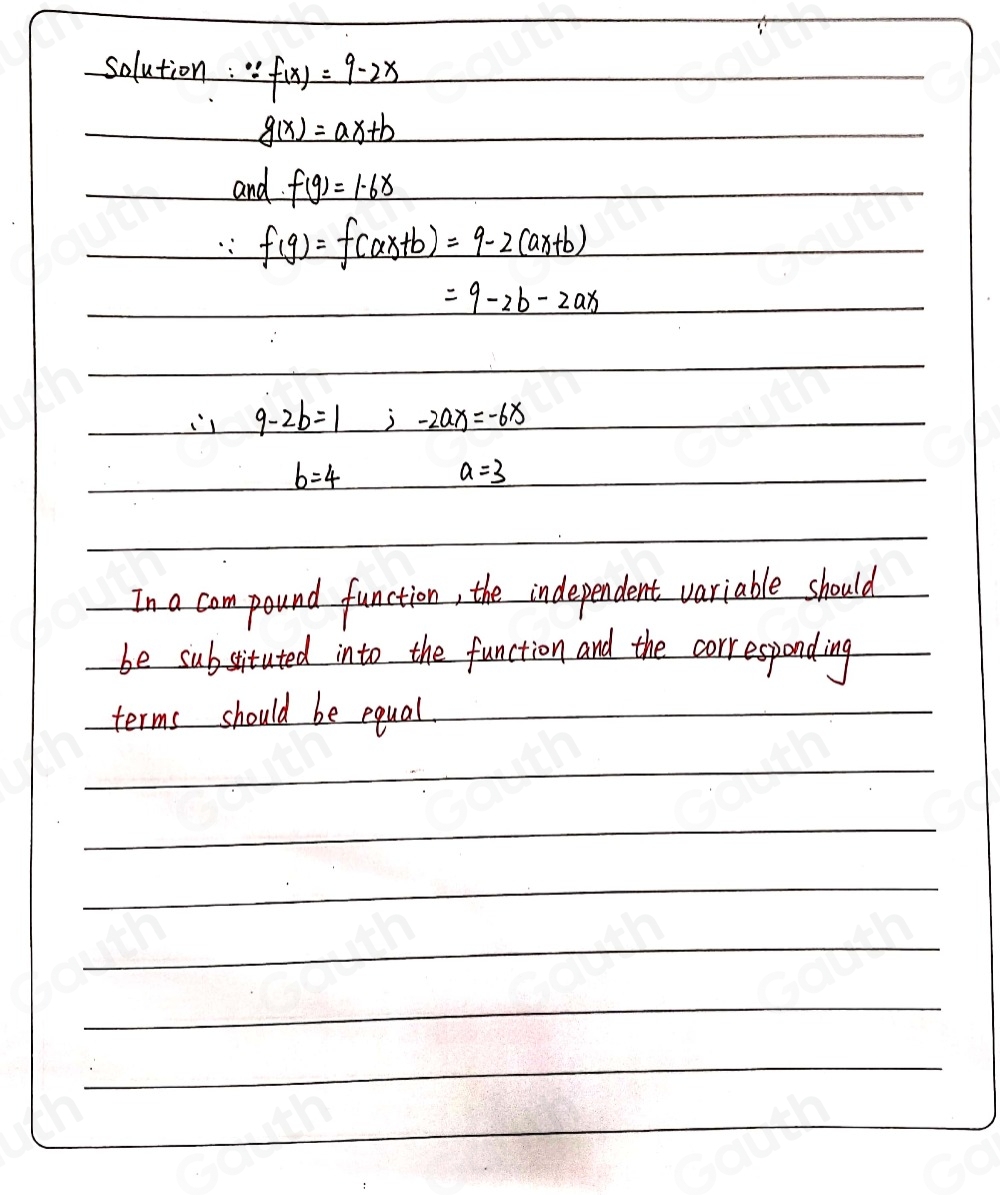 Solution : ∵ f(x) = 9-2x
g(x) = ax+b
and f(g) = 1-6x
∵ f(g) = f(ax+b) = 9-2(ax+b)
= 9-2b-2ax
∴ 9-2b=1 ; -2ax=-6x
b=4 a=3
In a com pound function, the independent variable should
be substituted into the function and the corresponding
terms should be equal.
Gauth